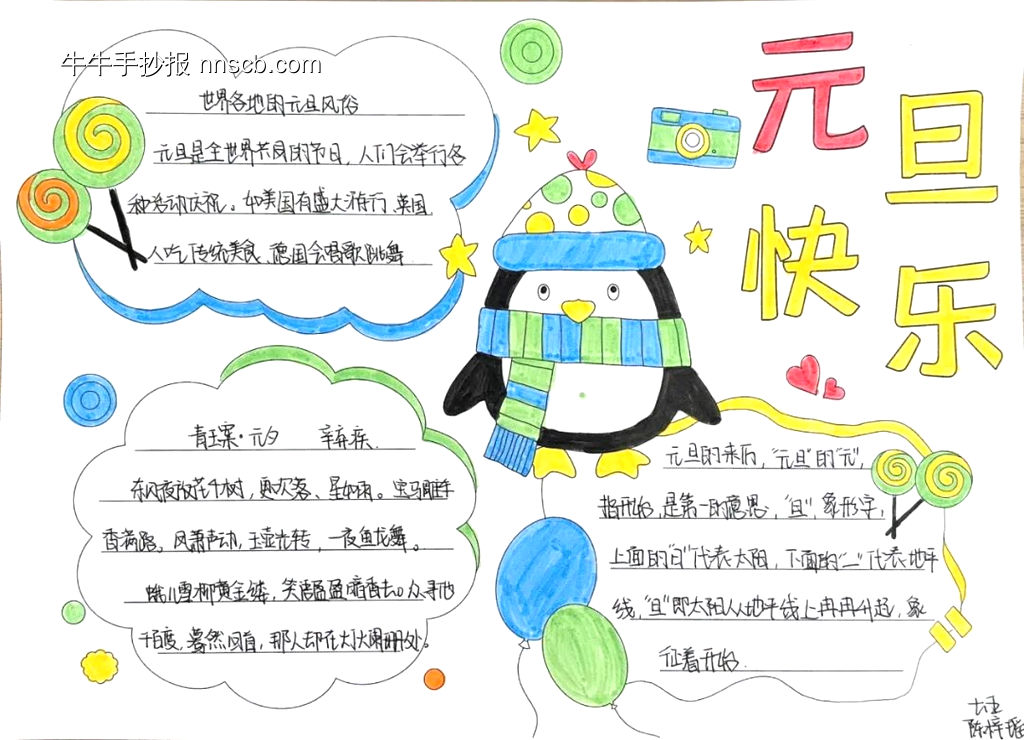 牛牛手抄报 nnscb.com
元旦快乐
世界各地的元旦风俗
元旦是全世界共同的节日,人们会举行各
种活动庆祝。如美国有盛大游行,英国
人吃传统美食,德国会唱歌跳舞
青玉案·元夕 辛弃疾
东风夜放花千树,更吹落、星如雨。宝马雕车
香满路。风萧声动,玉壶光转,一夜鱼龙舞。
蛾儿雪柳黄金缕,笑语盈盈暗香去。众寻他
千百度,蓦然回首,那人却在灯火阑珊处。
元旦的来历,“元旦”的“元”,
指开始,是第一的意思,“旦”,象形字,
上面的“日”代表太阳,下面的“一”代表地平
线,“旦”即太阳从地平线上冉冉升起,象
征着开始
陈梓瑶